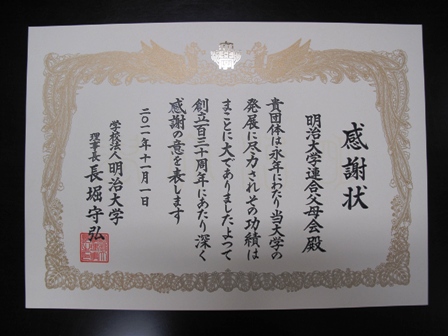 感謝状
明治大学連合父母会殿
貴団体は永年にわたり当大学の
発展に尽力されその功績は
まことに大でありましたよつて
創立百三十周年にあたり深く
感謝の意を表します
二〇一一年十一月一日
学校法人明治大学
理事長 長堀守弘